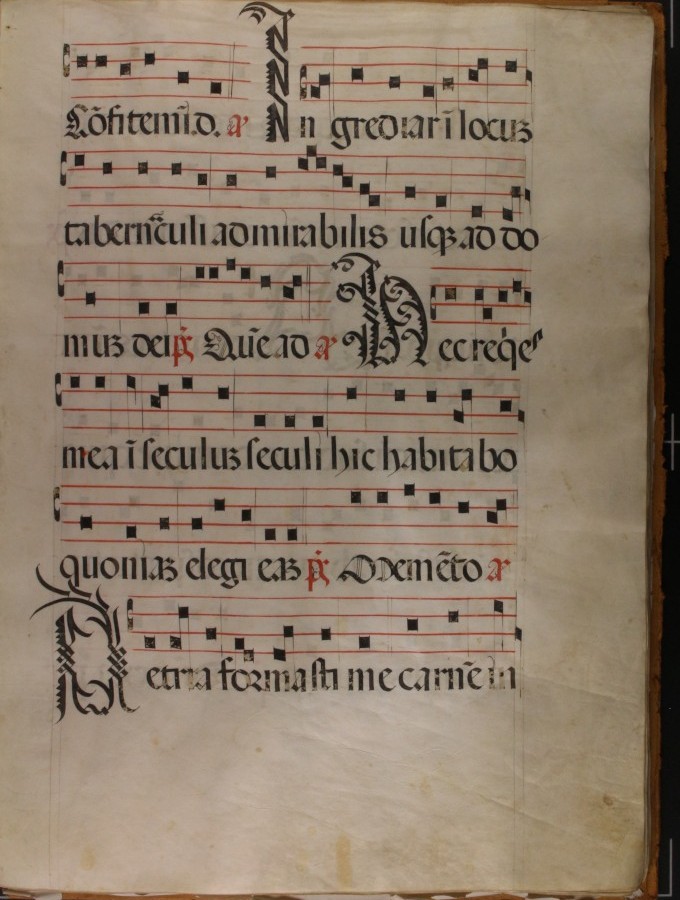 Cõfitemĩ.d. aᷓ In grediar ĩ locuʒ
tabernãculi admirabilis usqʒ ad do
muʒ dei p̃s Quẽ ad aᷓ Hec reqeˢ
mea ĩ seculuʒ seculi hic habitabo
quoniaʒ elegi eaʒ p̃s D memẽto aᷓ
E terra formasti me carnẽ in